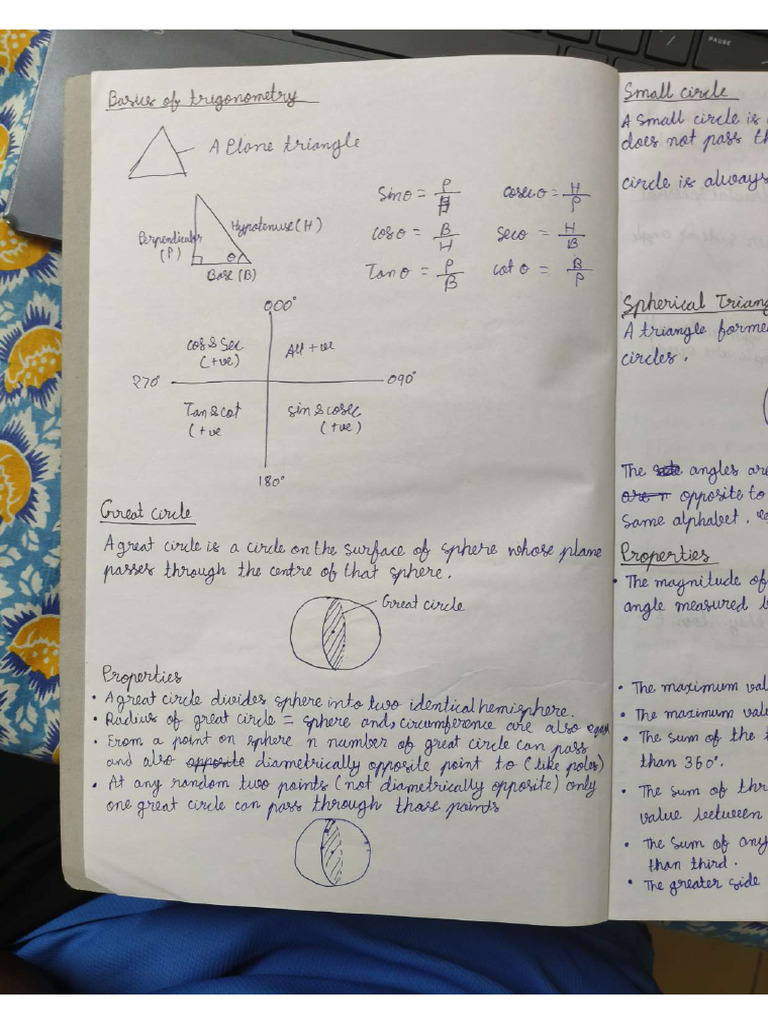 PAUSE
Basics of trigonometry
A Plane triangle
Sinθ = P/H
cosecθ = H/P
Perpendicular
(P)
Hypotenuse (H)
θ
Base (B)
cosθ = B/H
secθ = H/B
Tanθ = P/B
cotθ = B/P
000°
cos & Sec
(+ve)
All +ve
270°
090°
Tan & cot
(+ve
sin & cosec
(+ve)
180°
Great circle
A great circle is a circle on the surface of sphere whose plane
passes through the centre of that sphere.
Great circle
Properties
• A great circle divides sphere into two identical hemisphere.
• Radius of great circle = sphere and, circumference are also equal
• From a point on sphere n number of great circle can pass
and also opposite diametrically opposite point to (like poles)
• At any random two points (not diametrically opposite) only
one great circle can pass through those points
Small circle
A small circle is
does not pass th
circle is always
Spherical Triang
A triangle forme
circles.
The side angles are
are n opposite to
same alphabet.
Properties
• The magnitude of
angle measured b
• The maximum val
• The maximum valu
• The sum of the t
than 360°.
• The sum of thr
value between
• The sum of any
than third.
• The greater side